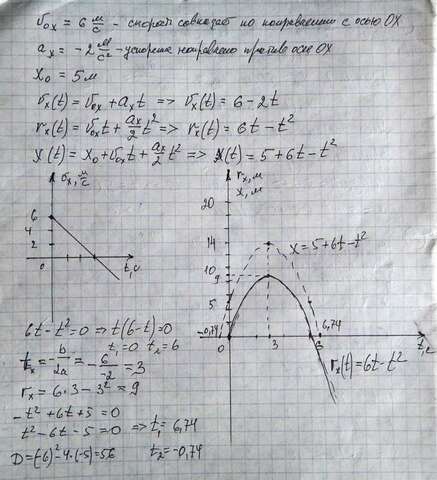 v₀ₓ = 6 м/с - скорость совпадает по направлению с осью OX
aₓ = -2 м/с² - ускорение направлено против оси OX
x₀ = 5 м
vₓ(t) = v₀ₓ + aₓt => vₓ(t) = 6 - 2t
rₓ(t) = v₀ₓt + aₓ/2 t² => rₓ(t) = 6t - t²
x(t) = x₀ + v₀ₓt + aₓ/2 t² => x(t) = 5 + 6t - t²
vₓ, м/с
6
4
2
0
t, с
rₓ, м
x, м
20
14
10
9
5
-0,74
0
3
6
6,74
t, с
x = 5 + 6t - t²
rₓ(t) = 6t - t²
6t - t² = 0 => t(6 - t) = 0
t₁ = 0 t₂ = 6
tₓ = -b/2a = -6/-2 = 3
rₓ = 6·3 - 3² = 9
-t² + 6t + 5 = 0
t² - 6t - 5 = 0 => t₁ = 6,74
D = (-6)² - 4·(-5) = 56 t₂ = -0,74